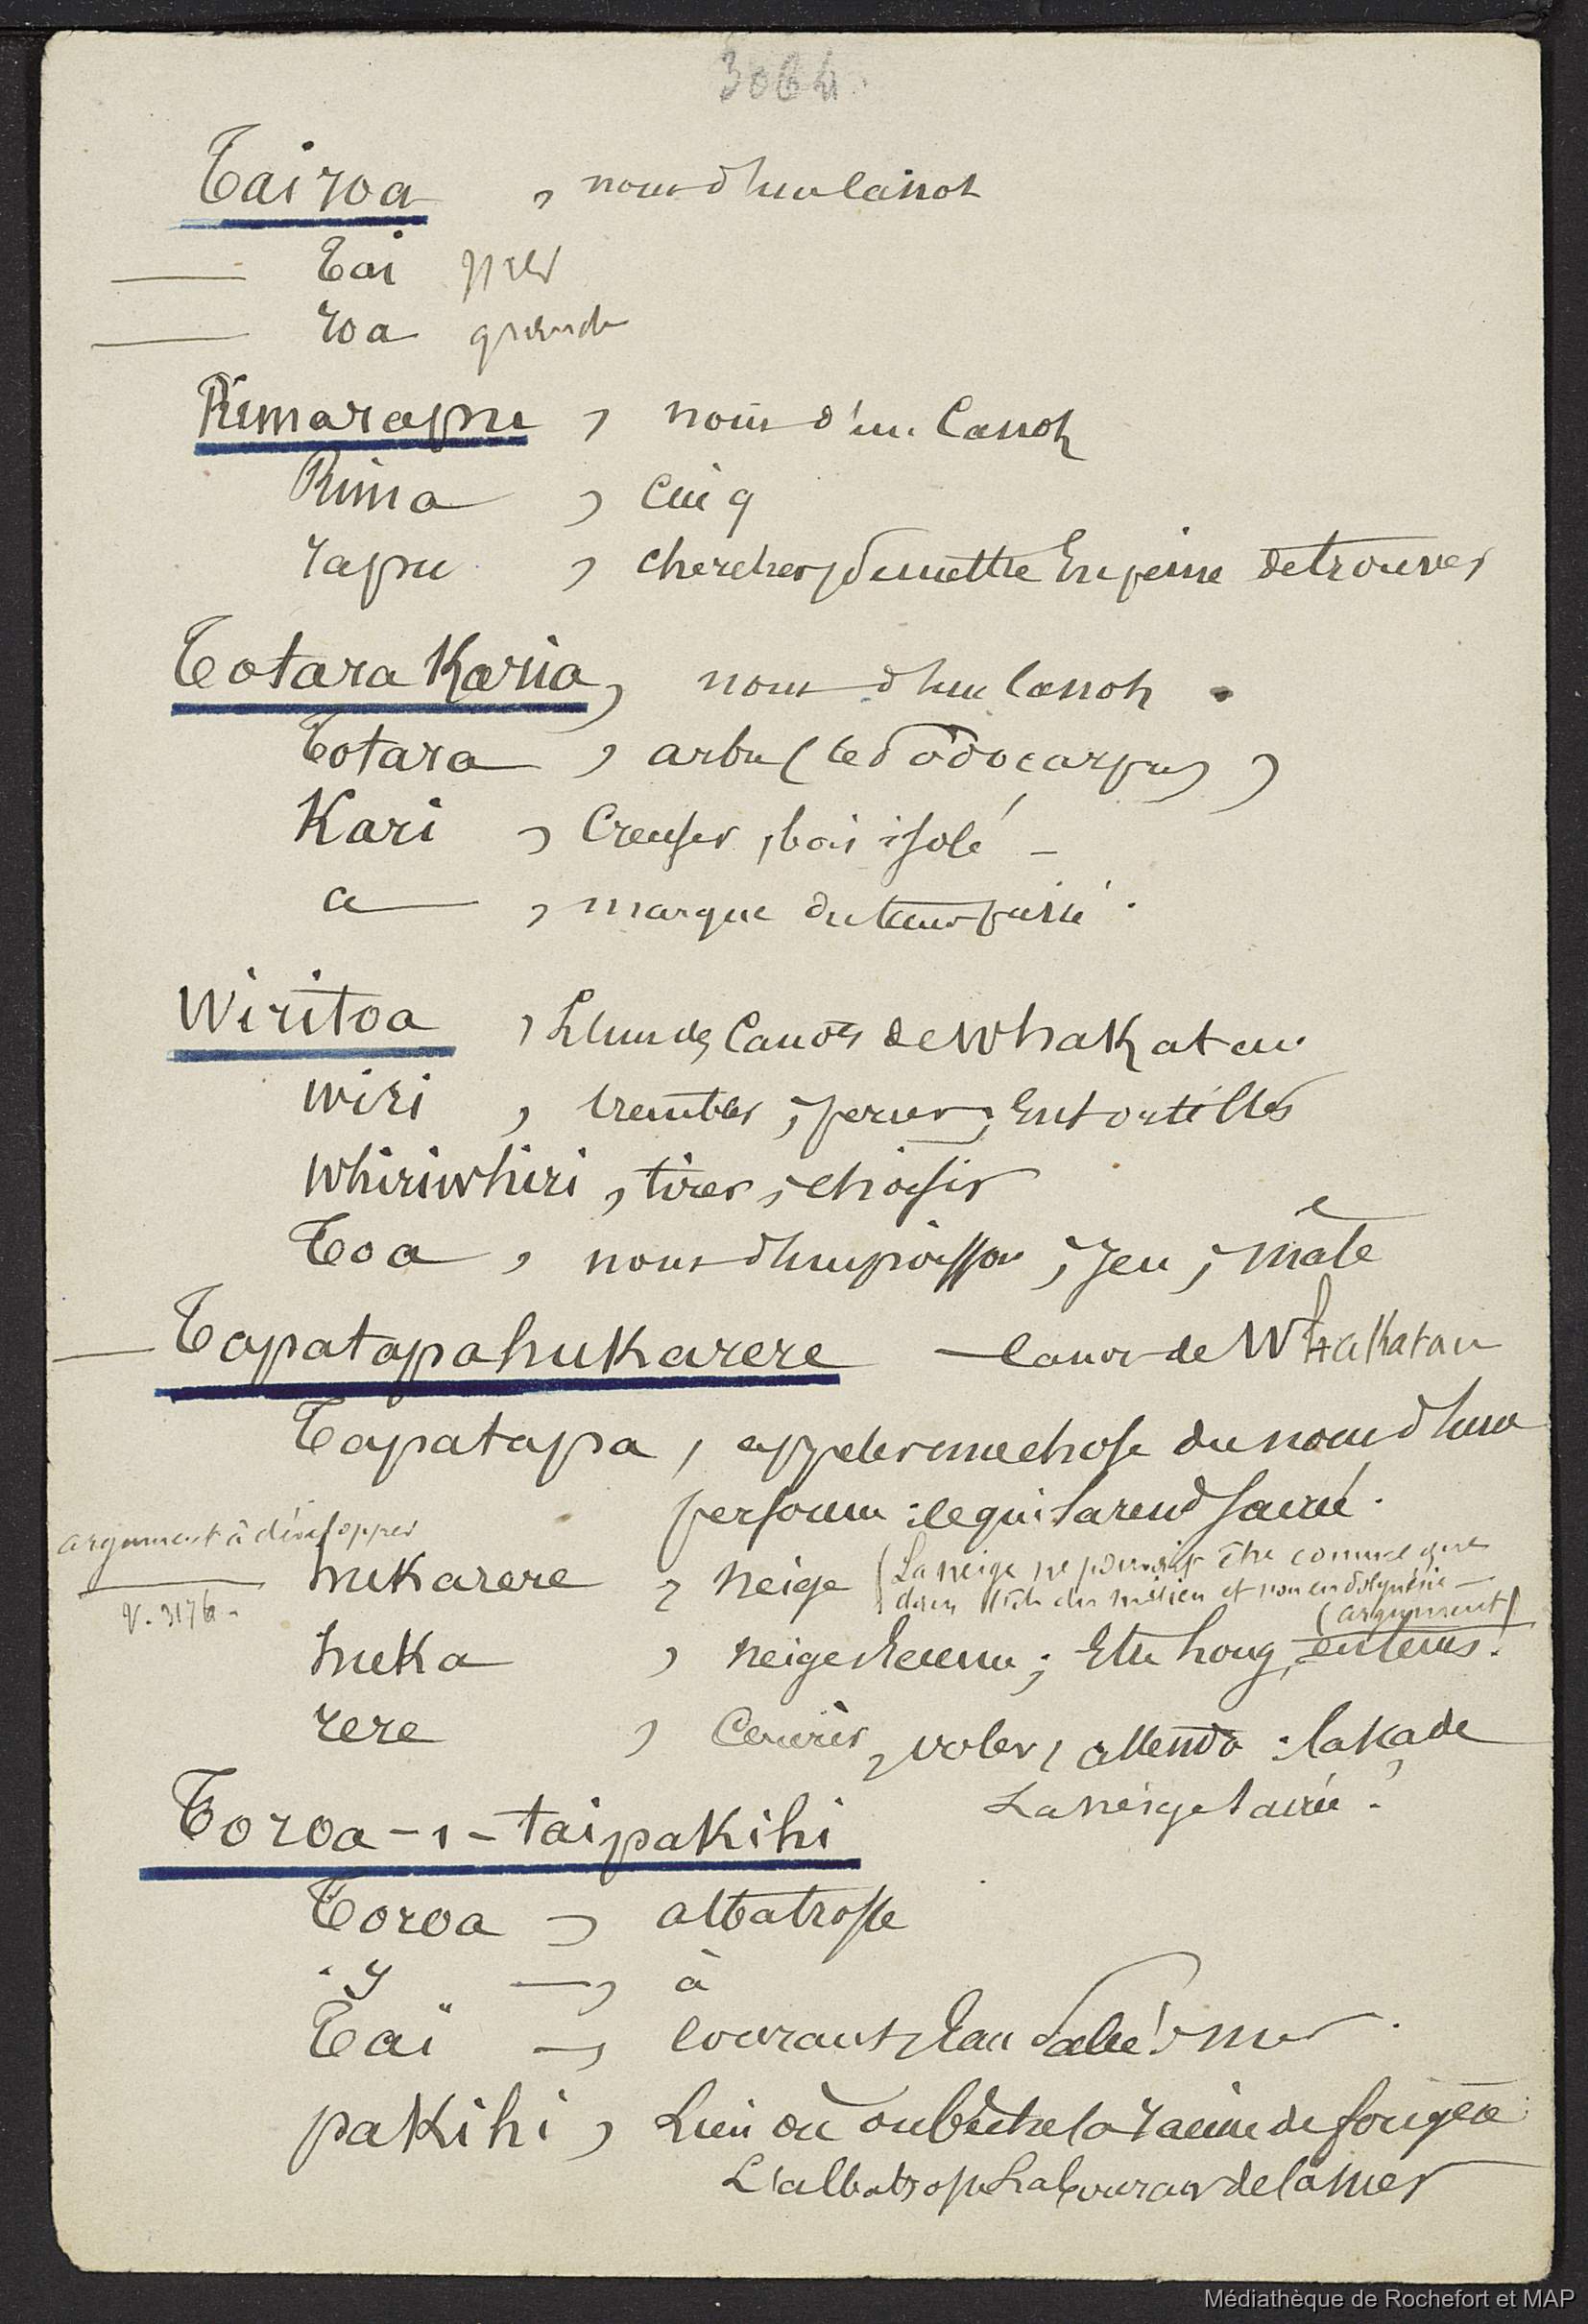 3064
Tairoa , nom d'un canot
Tai mer
roa grande
Rimarapu , nom d'un Canot
Rima , cinq
rapu , chercher, se mettre en peine de trouver
Totara Karia, nom d'un canot .
Totara , arbre ( le podocarpus )
Kari , Creuser, bois isolé -
a , marque du tems passé .
Wiritoa , L'un des Canots de Whakatau
wiri , trembler ; percer ; entortiller
Whiriwhiri , tirer ; choisir
Toa , nom d'un poisson ; jeu ; mâle
— Tapatapahukarere — Canot de Whakatau
Tapatapa , appeler une chose du nom d'une
personne : ce qui la rend sacrée .
argument à développer
hukarere , neige (La neige ne pouvait être connue que
V. 3176 -
dans l'île du milieu et non en Polynésie -
(argument)
huka , neige, écume ; être long, en tems !
rere , Courir, voler, attendre : la
La neige sacrée .
Toroa-i-taipakihi
Toroa , albatrosse
y —, à
Taï —, courant, eau salée, mer .
pakihi , Lieu où on bêche la racine de fougère
L'albatrosse de la mer